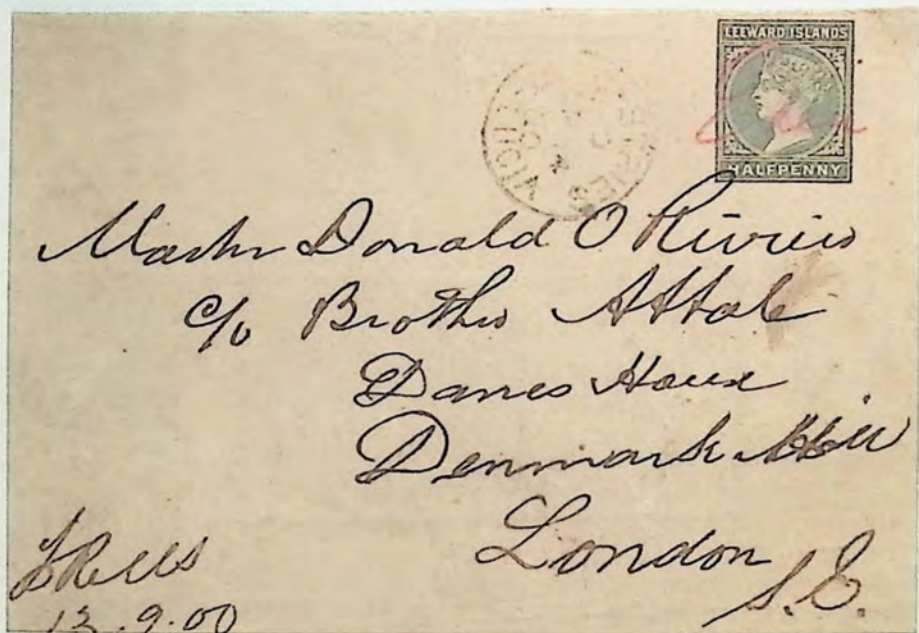 LEEWARD ISLANDS
HALFPENNY
Master Donald O Rivière
c/o Brother Attale
Danes House
Denmark Hill
London
S.E.
13.9.00